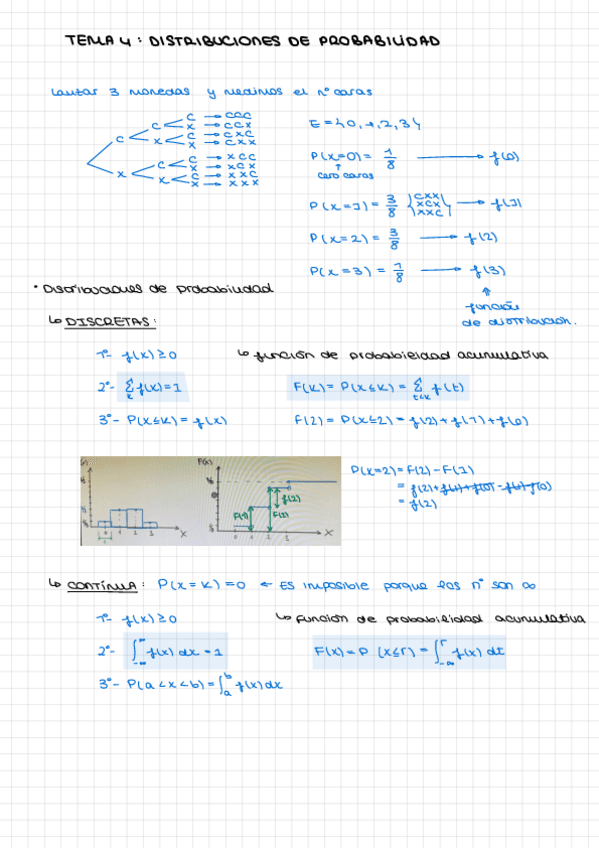 TEMA 4: DISTRIBUCIONES DE PROBABILIDAD
Lanzar 3 monedas y medimos el nº caras
C C C → CCC
X → CCX
X C → CXC
X → CXX
X C C → XCC
X → XCX
X C → XXC
X → XXX
E = {0, 1, 2, 3}
P(X=0) = 1/8 → f(0)
↑
cero caras
P(X=1) = 3/8 {CXX XCX XXC} → f(1)
P(X=2) = 3/8 → f(2)
P(X=3) = 1/8 → f(3)
función
de distribución.
• Distribuciones de probabilidad
↳ DISCRETAS:
1º- f(x) ≥ 0
2º- ∑x f(x) = 1
3º- P(X≤K) = f(x)
↳ función de probabilidad acumulativa
F(K) = P(X≤K) = ∑t≤K f(t)
F(2) = P(X≤2) = f(2) + f(1) + f(0)
F(x)
f(2)
F(1) F(2)
0 1 2 3 X
0 1 2 3 X
P(X=2) = F(2) - F(1)
= f(2) + f(1) + f(0) - f(1) - f(0)
= f(2)
↳ CONTÍNUA: P(X=K) = 0 ← Es imposible porque los nº son ∞
1º- f(x) ≥ 0
2º- ∫-∞^∞ f(x) dx = 1
3º- P(a<x<b) = ∫a^b f(x) dx
↳ Función de probabilidad acumulativa
F(x) = P (X≤r) = ∫-∞^r f(x) dt